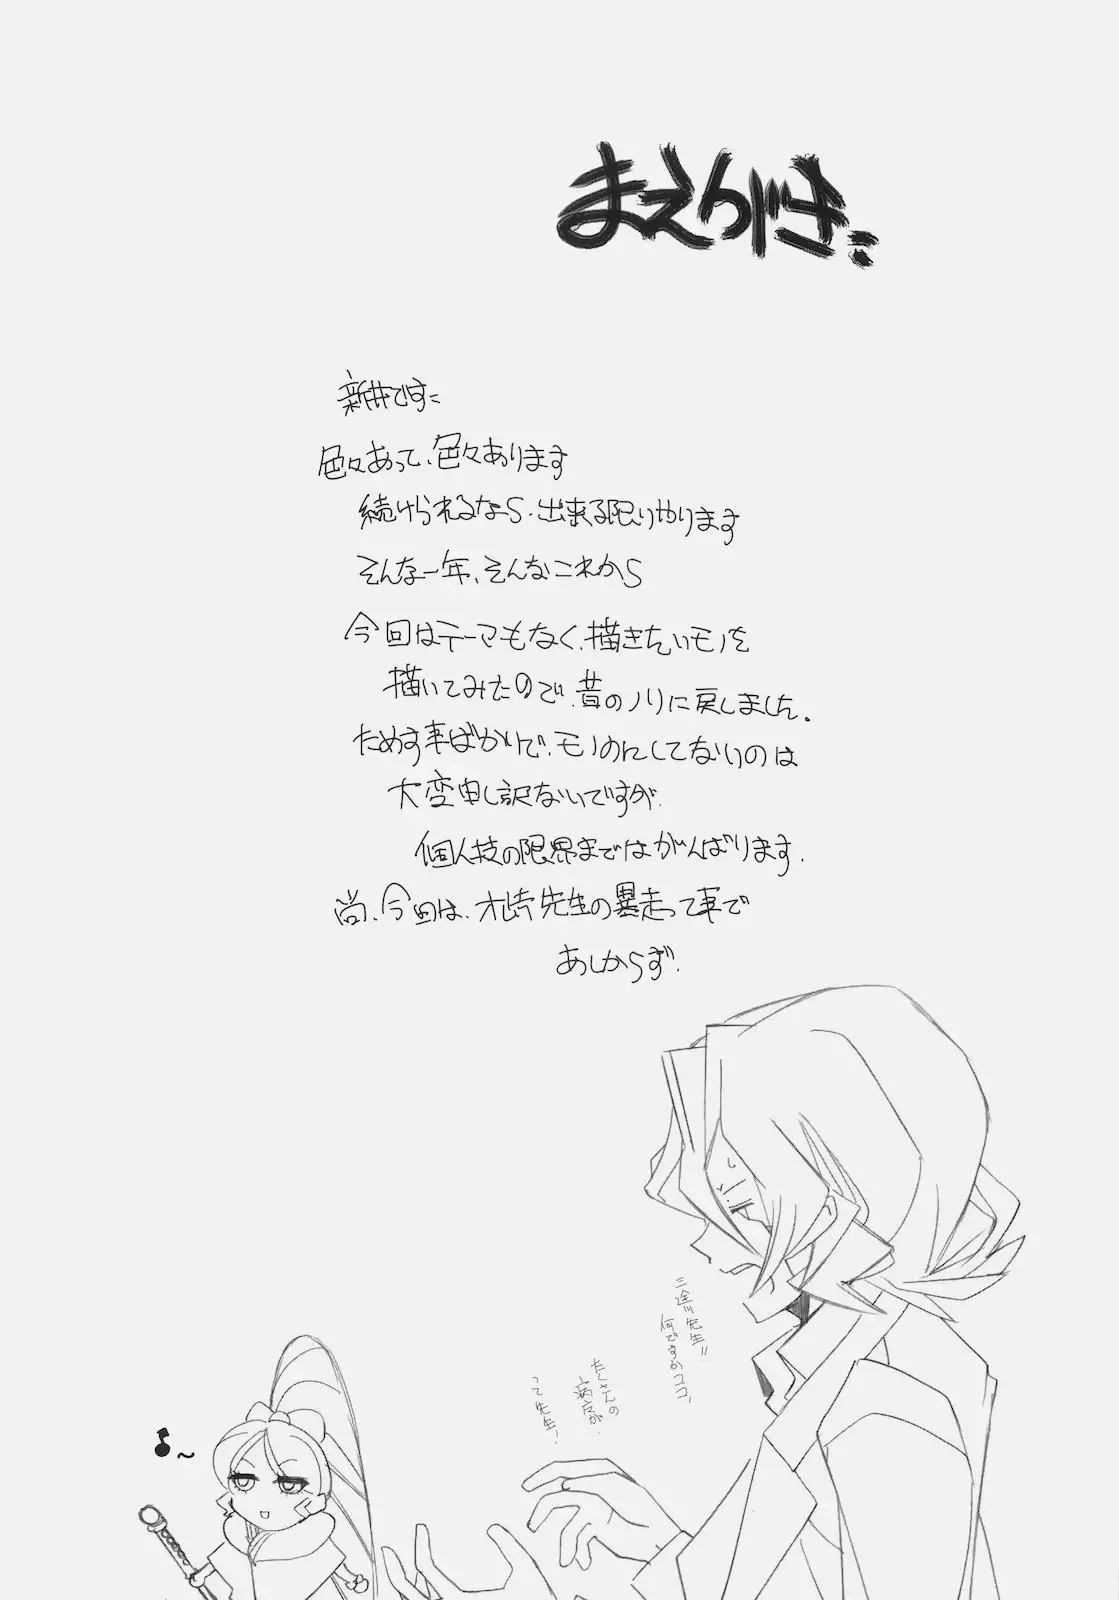 まえがき
新井です
色々あって、色々あります
続けられるなら、出来る限りやります
そんな一年、そんなこれから
今回はテーマもなく、描きたいモノを
描いてみたので、昔のノリに戻しました。
ためす事ばかりで、モノにしてないのは
大変申し訳ないですが、
個人技の限界まではがんばります。
尚、今回は、先生の暴走って事で
あしからず。
三途川先生!!
何ですかココ
たくさんの
病友が、
って先生！